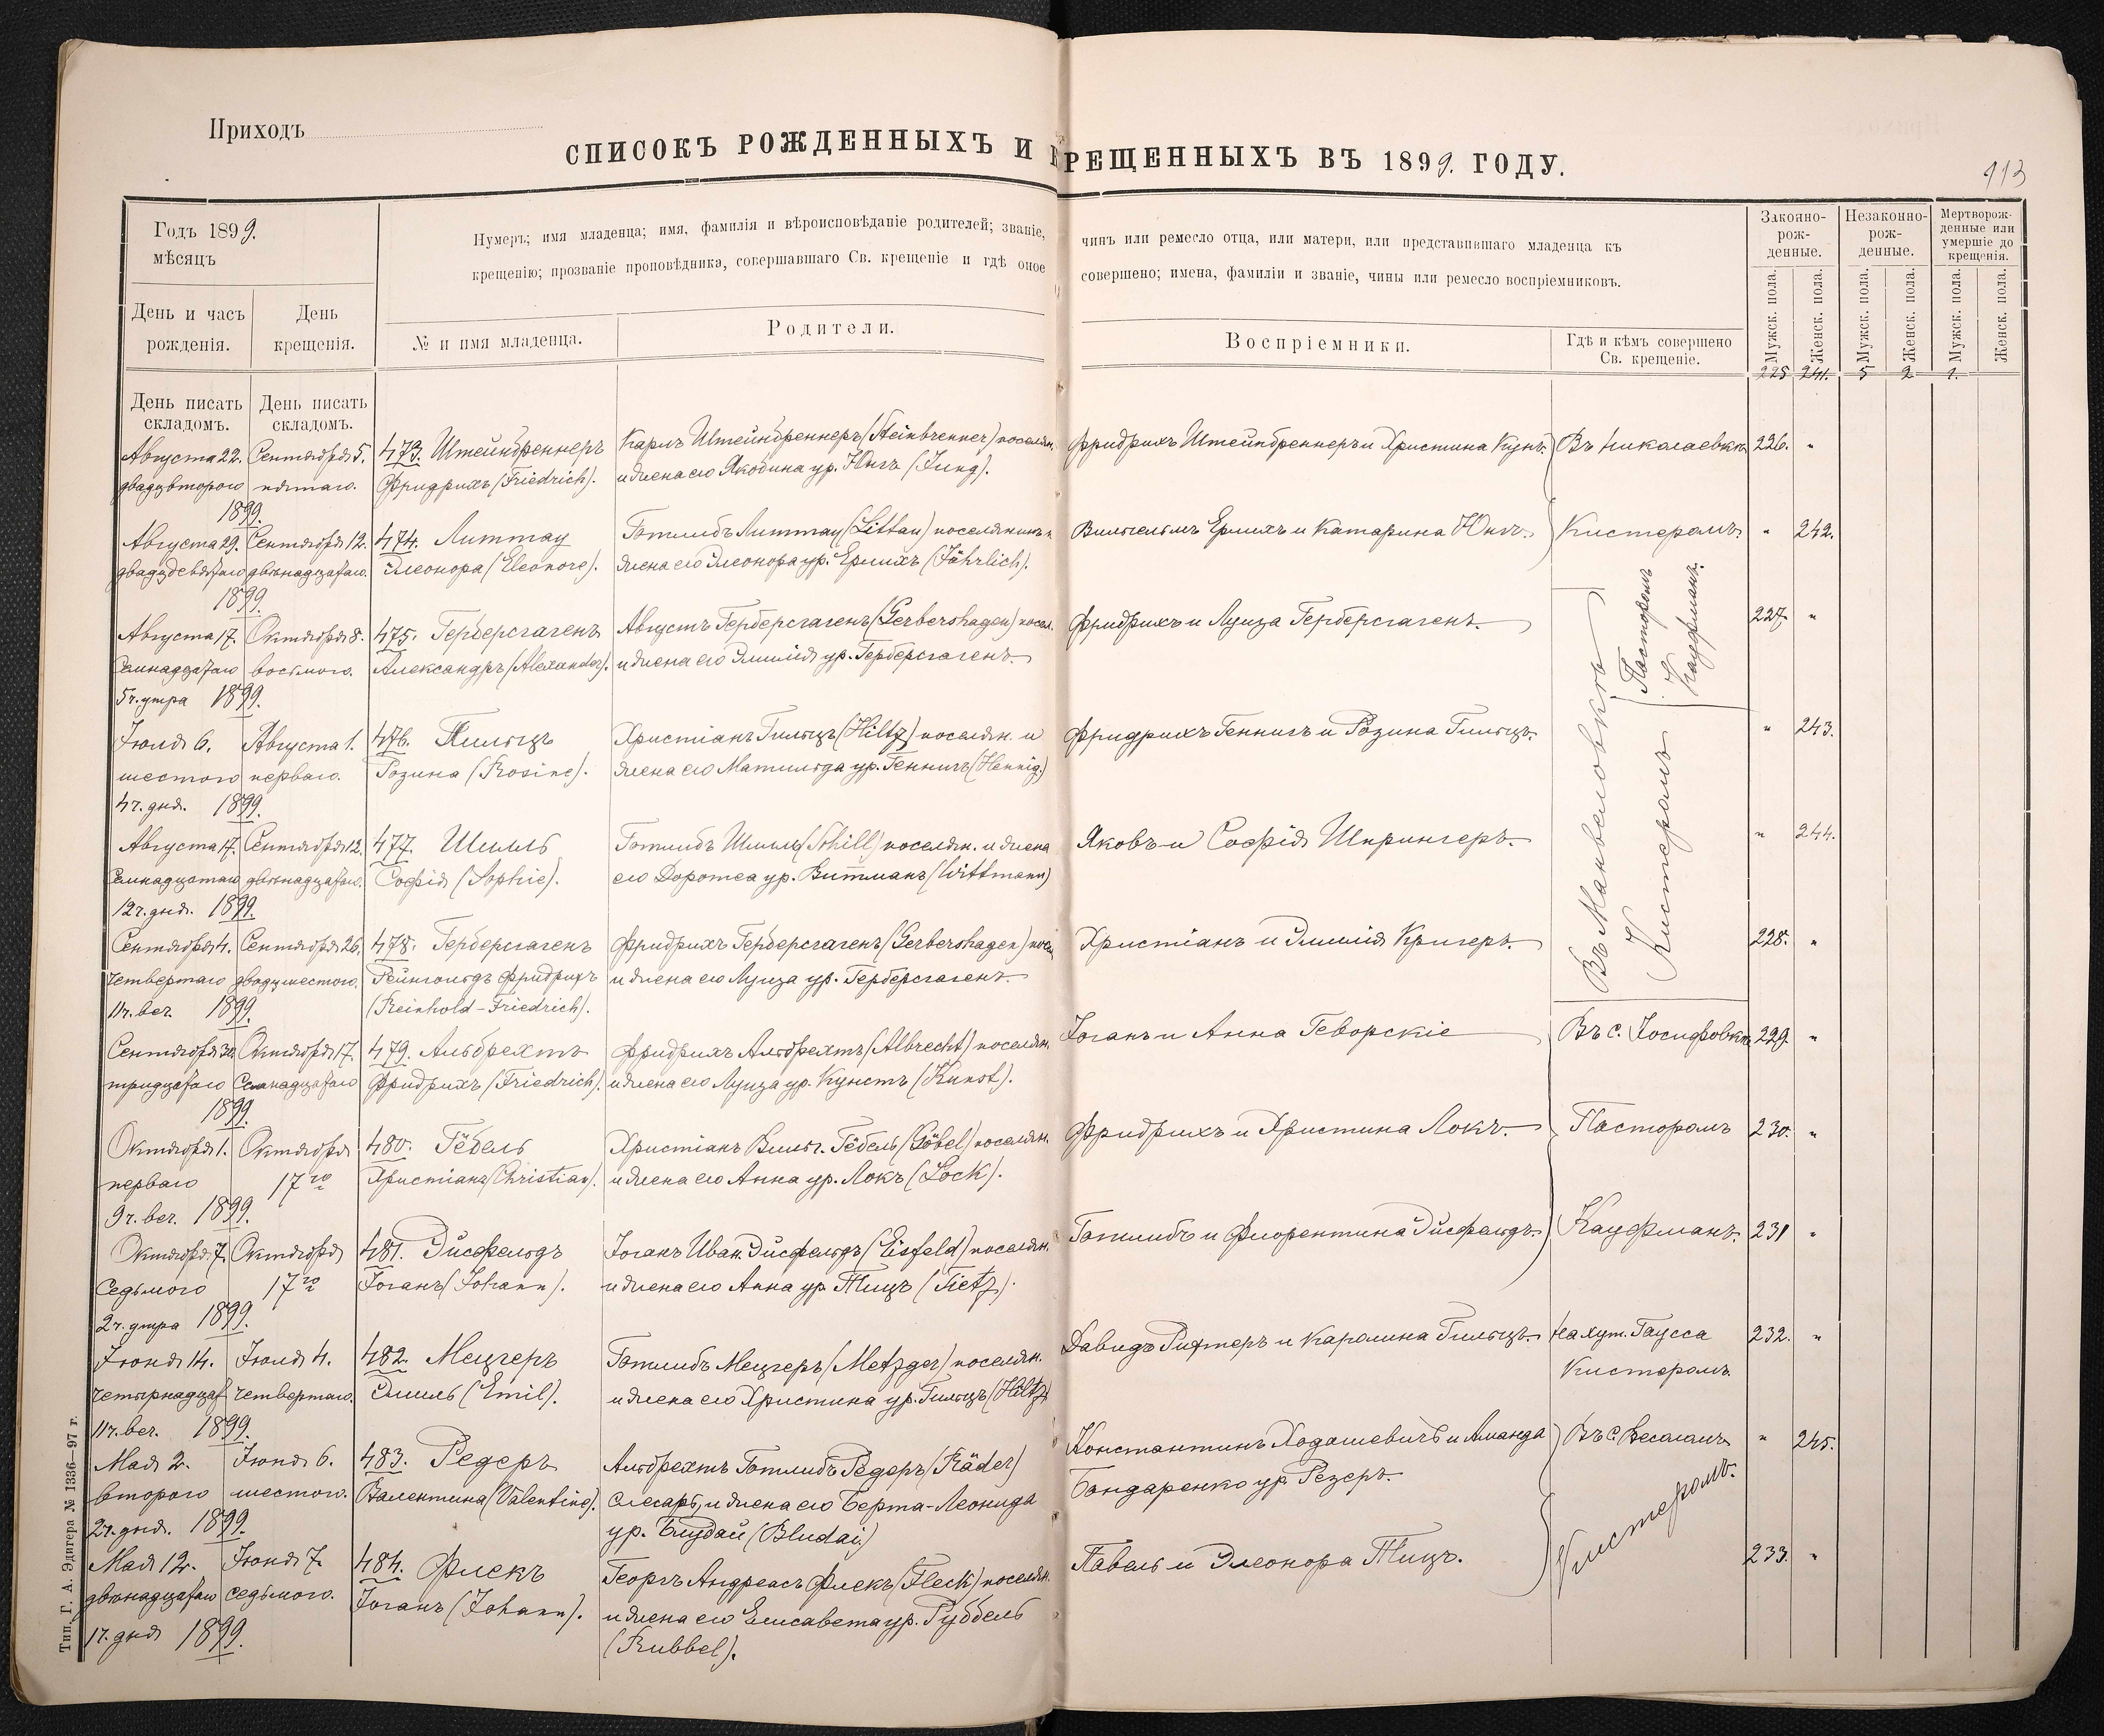 Приходъ
СПИСОКЪ РОЖДЕННЫХЪ И КРЕЩЕННЫХЪ ВЪ 1899. ГОДУ.
113
Годъ 1899.
мѣсяцъ
День и часъ
рожденія.
День
крещенія.
Нумеръ; имя младенца; имя, фамилія и вѣроисповѣданіе родителей; званіе,
крещенію; прозваніе проповѣдника, совершавшаго Св. крещеніе и гдѣ оное
№ и имя младенца.
Родители.
чинъ или ремесло отца, или матери, или представившаго младенца къ
совершено; имена, фамиліи и званіе, чины или ремесло воспріемниковъ.
Воспріемники.
Гдѣ и кѣмъ совершено
Св. крещеніе.
Законно-
рож-
денные.
Незаконно-
рож-
денные.
Мертворож-
денные или
умершіе до
крещенія.
Мужск. пола.
Женск. пола.
Мужск. пола.
Женск. пола.
Мужск. пола.
Женск. пола.
225 241. 5 2 1.
День писать
складомъ.
День писать
складомъ.
Августа 22.
двадцвторого
1899.
Сентября 5.
пятаго.
473. Штейнбреннеръ
Фридрихъ (Friedrich).
Карлъ Штейнбреннеръ (Steinbrenner) поселян.
и жена его Якобина ур. Юнгъ (Jung).
Фридрихъ Штейнбреннеръ и Христина Кунъ.
Въ Николаевкѣ
226. "
Августа 29.
двадцдевятаго
1899.
Сентября 12.
двѣнадцатаго.
474. Литтау
Элеонора (Eleonore).
Готлибъ Литтау (Littau) поселянинъ и
жена его Элеонора ур. Ерлихъ (Jährlich).
Вильгельмъ Ерлихъ и Катарина Юнгъ.
Кистеромъ.
" 242.
Августа 17.
Семнадцатаго
5 ч. утра 1899.
Октября 8.
восьмого.
475. Герберсгагенъ
Александръ (Alexander).
Августъ Герберсгагенъ (Gerbershagen) посел.
и жена его Эмилія ур. Герберсгагенъ.
Фридрихъ и Луиза Герберсгагенъ.
Пасторомъ
Кауфманъ.
227. "
Іюля 6.
шестого
4 ч. дня. 1899.
Августа 1.
перваго.
476. Гильцъ
Розина (Rosine).
Христіанъ Гильцъ (Hiltz) поселян. и
жена его Матильда ур. Геннигъ (Hennig.)
Фридрихъ Геннигъ и Розина Гильцъ.
Въ Манвеловкѣ
Кистеромъ
" 243.
Августа 17.
Семнадцатаго
12 ч. дня. 1899.
Сентября 12.
двѣнадцатаго.
477. Шилль
Софія (Sophie).
Готлибъ Шилль (Schill) поселян. и жена
его Доротеа ур. Витманъ (Wittmann)
Яковъ и Софія Шпрингеръ.
" 244.
Сентября 4.
четвертаго
11 ч. веч. 1899.
Сентября 26.
двадцшестого.
478. Герберсгагенъ
Рейнгольдъ Фридрихъ
(Reinhold-Friedrich).
Фридрихъ Герберсгагенъ (Gerbershagen) посел.
и жена его Луиза ур. Герберсгагенъ.
Христіанъ и Эмилія Кригеръ.
228. "
Сентября 30.
тридцатаго
1899.
Октября 17.
Семнадцатаго
479. Альбрехтъ
Фридрихъ (Friedrich).
Фридрихъ Альбрехтъ (Albrecht) поселян.
и жена его Луиза ур. Кунстъ (Kunst).
Іоганъ и Анна Геворскіе
Въ с. Іосифовкѣ
229. "
Октября 1.
перваго
9 ч. веч. 1899.
Октября
17го
480. Гёбель
Христіанъ (Christian).
Христіанъ Вильг. Гёбель (Göbel) поселян.
и жена его Анна ур. Локъ (Lock).
Фридрихъ и Христина Локъ.
Пасторомъ
230. "
Октября 7.
Седьмого
2 ч. утра 1899.
Октября
17го
481. Эйсфельдъ
Іоганъ (Johann).
Іоганъ Иван. Эйсфельдъ (Eisfeld) поселян.
и жена его Анна ур. Тицъ (Tietz).
Готлибъ и Флорентина Эйсфельдъ.
Кауфманъ.
231 "
Іюня 14.
четырнадцат
11 ч. веч. 1899.
Іюля 4.
четвертаго.
482. Мецгеръ
Эмиль (Emil).
Готлибъ Мецгеръ (Metzger) поселян.
и жена его Христина ур. Гильцъ (Hiltz)
Давидъ Рихтеръ и Каролина Гильцъ.
На хут. Гаусса
Кистеромъ.
232. "
Мая 2.
второго
2 ч. дня. 1899.
Іюня 6.
шестого.
483. Редеръ
Валентина (Valentine).
Альбрехтъ Готлибъ Редеръ (Räder)
слесарь, и жена его Берта-Леонида
ур. Блудай (Bludai)
Константинъ Ходашевичъ и Аманда
Бондаренко ур. Резеръ.
Въ С.
" 245.
Мая 12.
двѣнадцатаго
1 ч. дня 1899.
Іюня 7.
седьмого.
484. Флекъ
Іоганъ (Johann).
Георгъ Андреасъ Флекъ (Fleck) поселян.
и жена его Елисавета ур. Руббель
(Rubbel).
Павелъ и Элеонора Тицъ.
Кистеромъ.
233. "
Тип. Г. А. Эдигера № 1336—97 г.